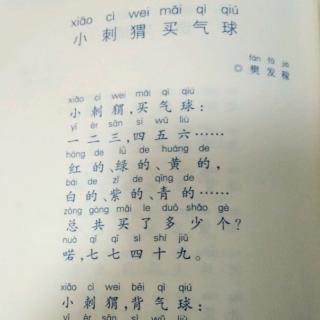 xiǎo cì wei mǎi qì qiú
小刺猬买气球
fán fā jià
◎樊发稼
xiǎo cì wei mǎi qì qiú
小刺猬，买气球：
yī èr sān sì wǔ liù
一二三，四五六……
hóng de lǜ de huáng de
红的、绿的、黄的，
bái de zǐ de qīng de
白的、紫的、青的……
zǒng gòng mǎi le duō shǎo gè
总共买了多少个？
nuò qī qī sì shí jiǔ
喏，七七四十九。
xiǎo cì wei bēi qì qiú
小刺猬，背气球：
yī èr sān sì wǔ liù